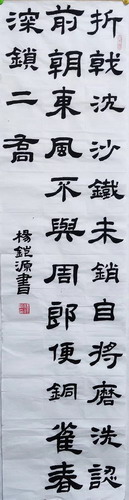 折戟沈沙鐵未銷自將磨洗認
前朝東風不與周郎便銅雀春
深鎖二喬
楊鎧源書